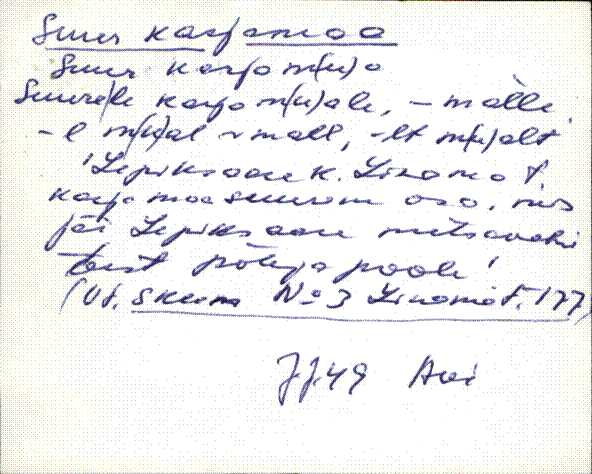 Suur karjamaa
Suur karjam(u)a
Suurele karjam(u)ale, – mālle
– l m(u)al ~ mall, -lt m(u)alt
'Lepiksaare k. Linama t.
karjamaa suurem osa, mis
jäi Lepiksaare metsavahi
test põhja poole'
(Vt. skeem No 3 Linamä t. 177)
J.J. 49